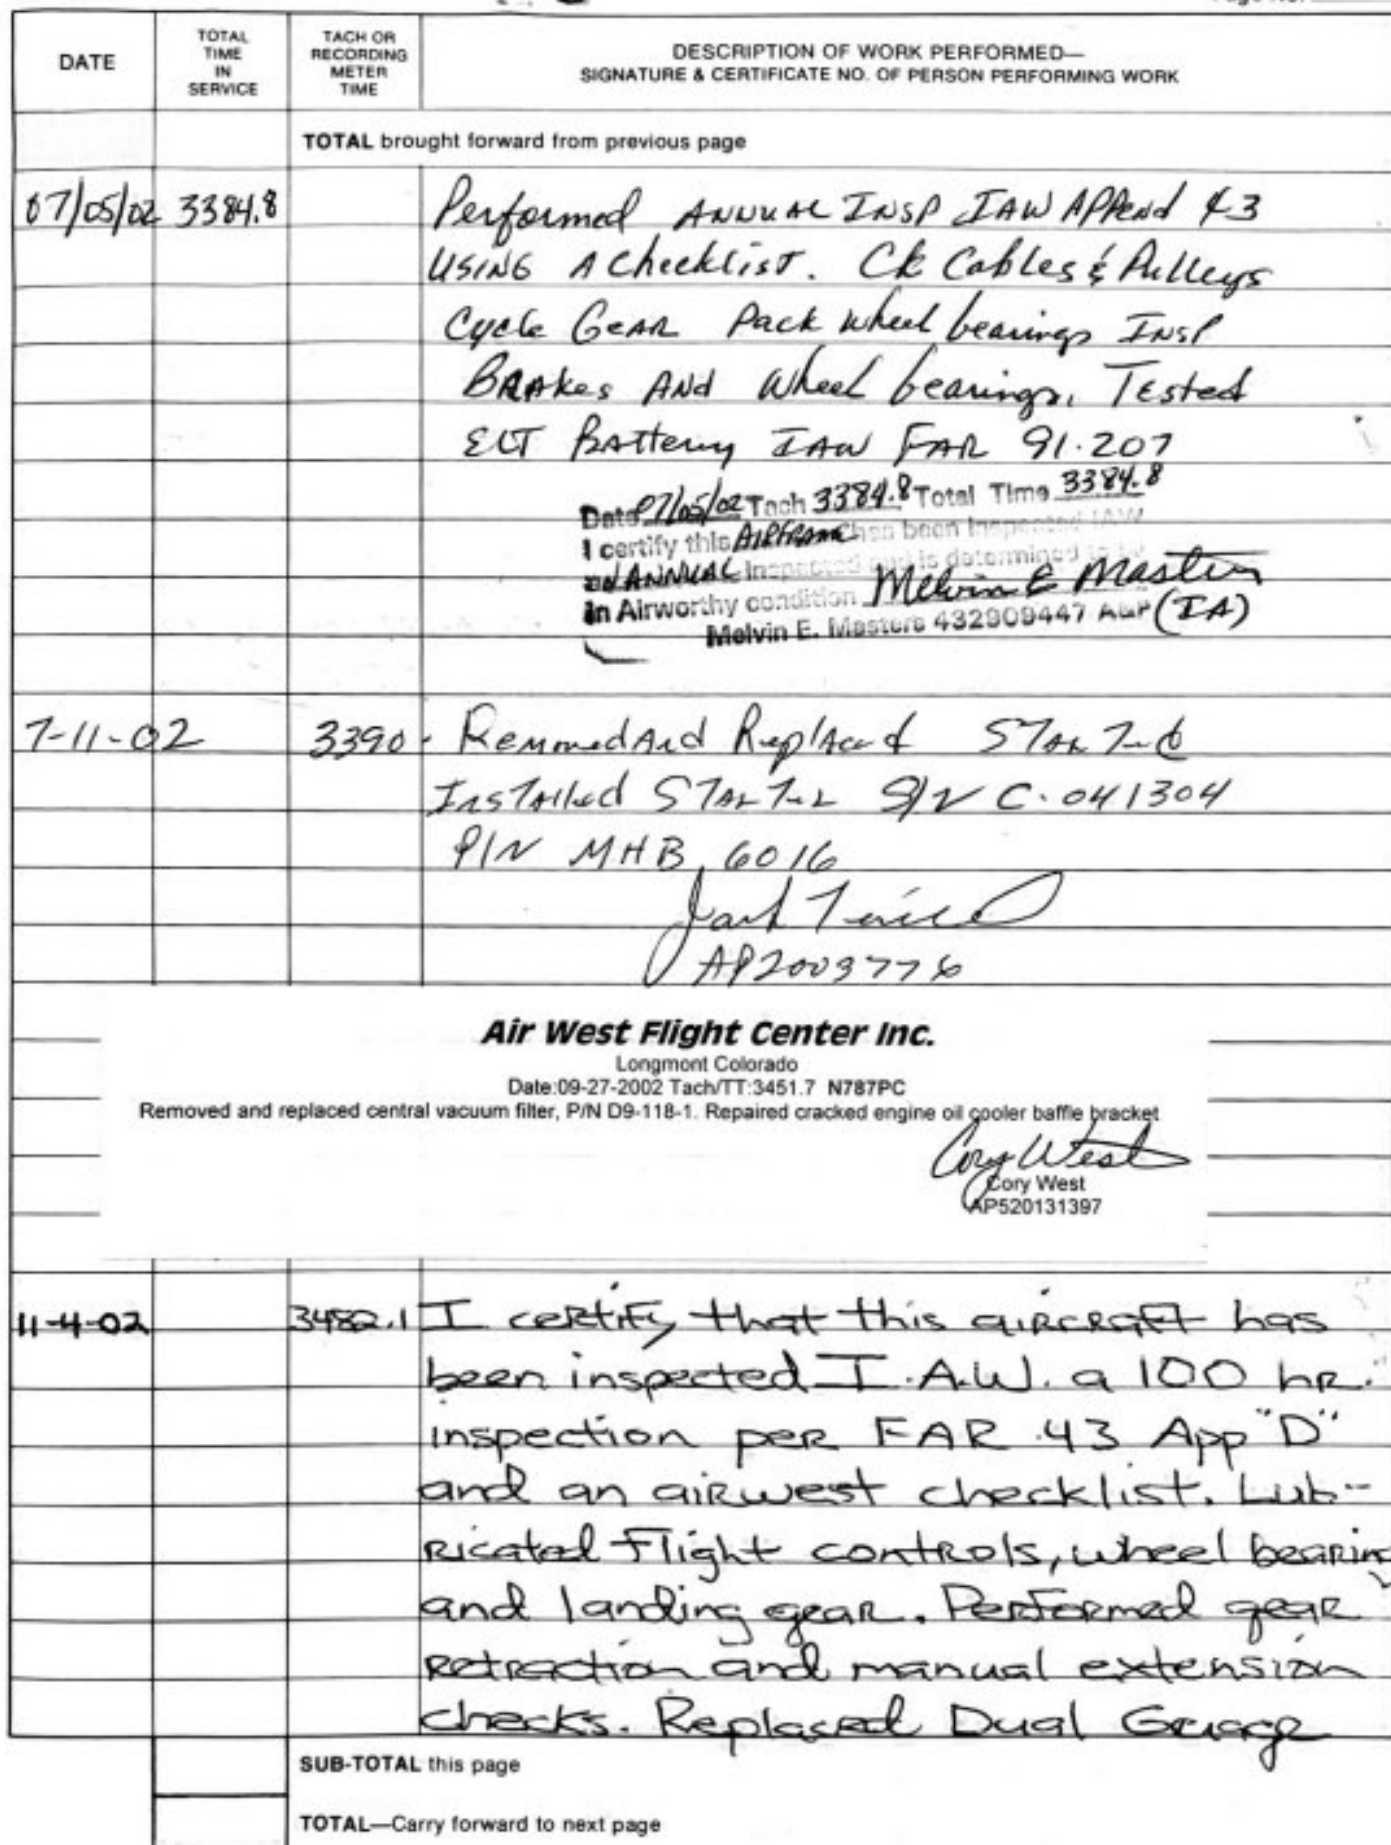 DATE
TOTAL TIME IN SERVICE
TACH OR RECORDING METER TIME
DESCRIPTION OF WORK PERFORMED—
SIGNATURE & CERTIFICATE NO. OF PERSON PERFORMING WORK
TOTAL brought forward from previous page
07/05/02 3384.8 Performed ANNUAL INSP IAW APPend 43
USING A Checklist. Ck Cables & Pulleys
Cycle Gear Pack wheel bearings INSP
BRAKes AND wheel bearings, Tested
ELT BAttery IAW FAR 91.207
Date 07/05/02 Tach 3384.8 Total Time 3384.8
I certify this AIRFRAME has been inspected IAW
an ANNUAL Inspected and is determined to be
in Airworthy condition Melvin E Masters
Melvin E. Masters 432909447 A&P (IA)
7-11-02 3390 Removed And Replaced
Installed Starter S/N C-041304
P/N MHB 6016
AP2003776
Air West Flight Center Inc.
Longmont Colorado
Date:09-27-2002 Tach/TT:3451.7 N787PC
Removed and replaced central vacuum filter, P/N D9-118-1. Repaired cracked engine oil cooler baffle bracket
Cory West
Cory West
AP520131397
11-4-02 3482.1 I certify that this aircraft has
been inspected I.A.W. a 100 hr.
inspection per FAR 43 App "D"
and an airwest checklist. Lub-
ricated Flight controls, wheel bearing
and landing gear. Performed gear
retraction and manual extension
checks. Replaced Dual Guage
SUB-TOTAL this page
TOTAL—Carry forward to next page